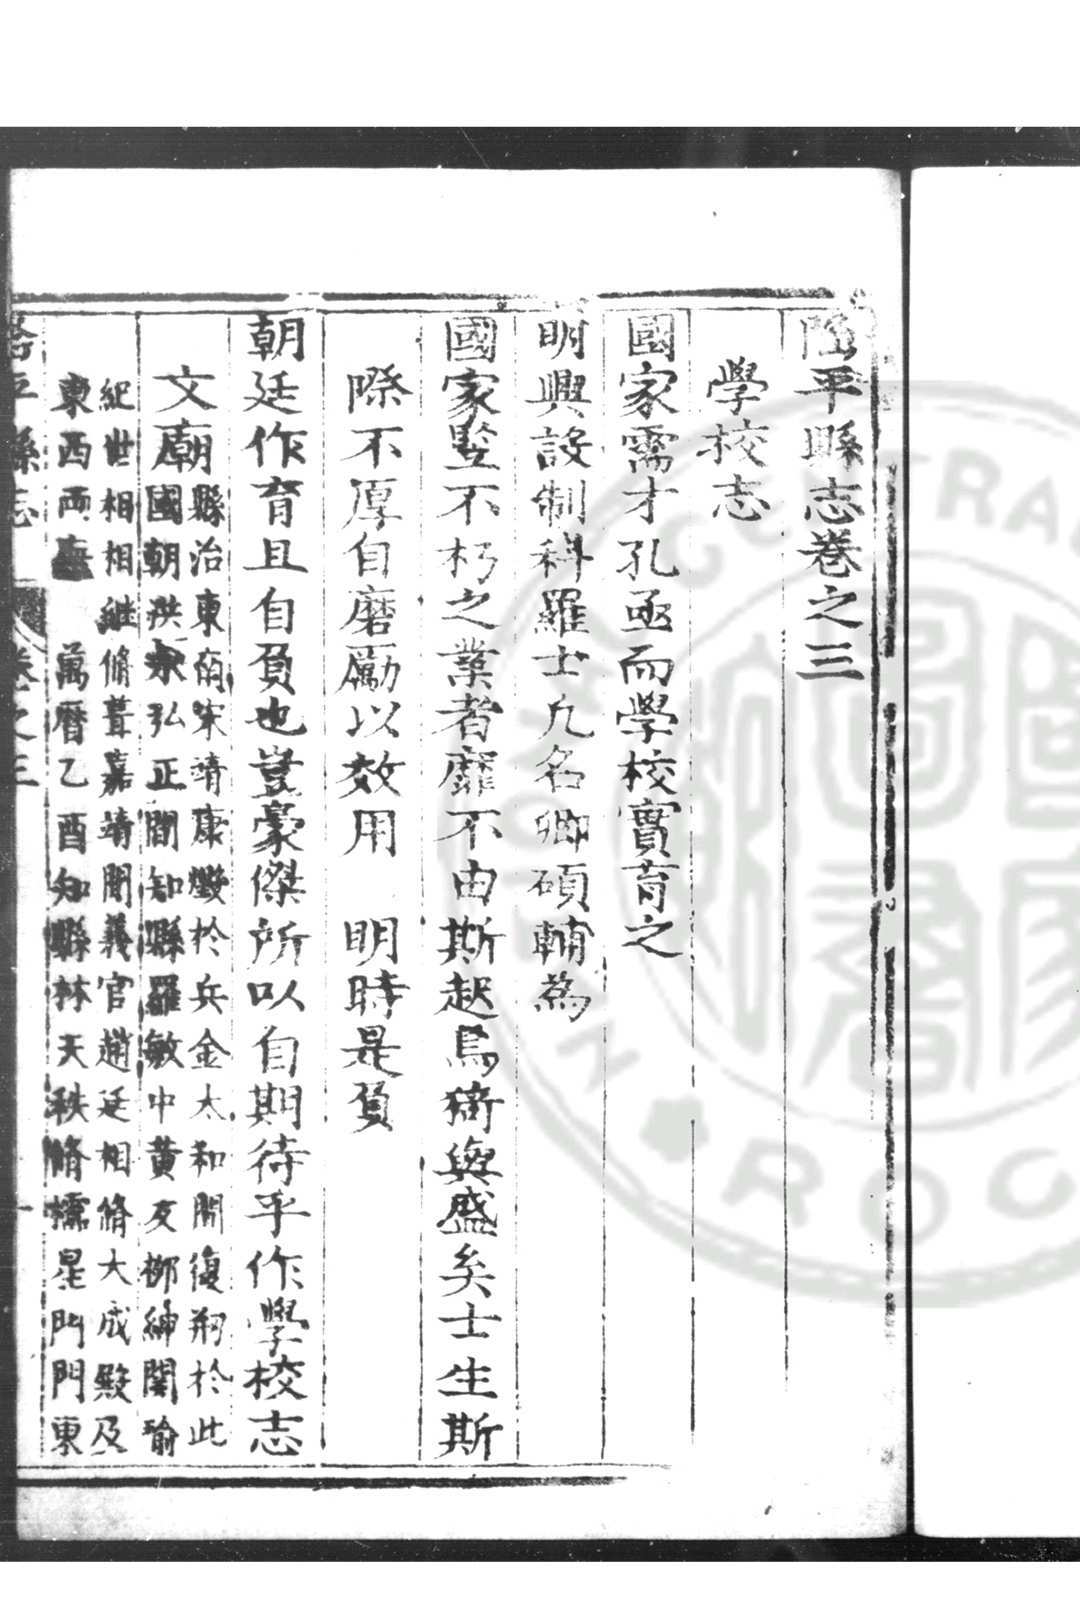 隆平縣志卷之三
學校志
國家需才孔亟而學校實育之
明興設制科羅士凡名卿碩輔為
國家竪不朽之業者靡不由斯起焉猗與盛矣士生斯
際不厚自磨勵以效用 明時是負
朝廷作育且自負也豈豪傑所以自期待乎作學校志
文廟
縣治東南宋靖康燬於兵金太和間復剏於此
國朝洪永弘正間知縣羅敏中黃友柳紳闗瑜
紀世相相繼脩葺嘉靖間義官趙廷相脩大成殿及
東西兩廡 萬曆乙酉知縣林天秩脩欞星門門東